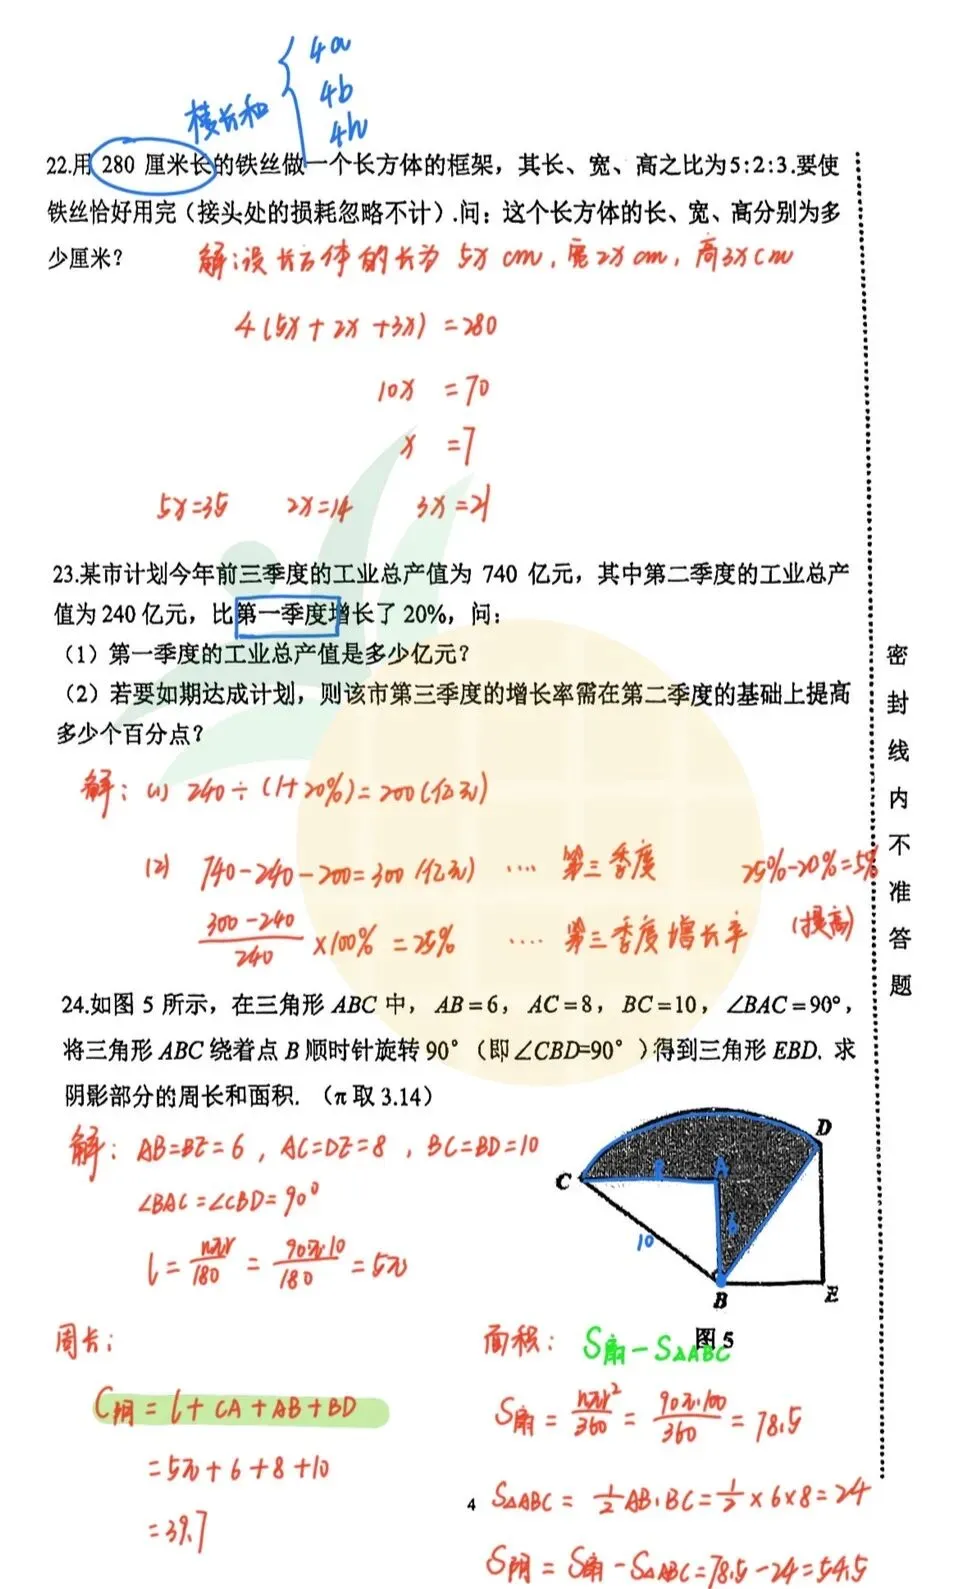 棱长和
4a
4b
4h
22.用 280 厘米长的铁丝做一个长方体的框架，其长、宽、高之比为5:2:3.要使
铁丝恰好用完（接头处的损耗忽略不计）.问：这个长方体的长、宽、高分别为多
少厘米？
解：设长方体的长为 5x cm，宽2x cm，高3x cm
4(5x+2x+3x)=280
10x =70
x =7
5x=35 2x=14 3x=21
23.某市计划今年前三季度的工业总产值为 740 亿元，其中第二季度的工业总产
值为 240 亿元，比第一季度增长了 20%，问：
（1）第一季度的工业总产值是多少亿元？
（2）若要如期达成计划，则该市第三季度的增长率需在第二季度的基础上提高
多少个百分点？
解：(1) 240÷(1+20%)=200(亿元)
(2) 740-240-200=300(亿元) .... 第三季度 25%-20%=5%
(提高)
300-240/240 ×100% =25% .... 第三季度增长率
24.如图 5 所示，在三角形 ABC 中， AB=6， AC=8， BC=10，∠BAC=90°，
将三角形 ABC 绕着点 B 顺时针旋转 90°（即∠CBD=90°）得到三角形 EBD. 求
阴影部分的周长和面积.（π取 3.14）
解：AB=BE=6，AC=DE=8，BC=BD=10
∠BAC=∠CBD=90°
l=nπr/180=90π·10/180=5π
C
8
A
D
6
10
B
E
图 5
周长：
C阴=l+CA+AB+BD
=5π+6+8+10
=39.7
面积： S扇-S△ABC
S扇=nπr²/360=90π·100/360=78.5
S△ABC=1/2AB·BC=1/2×6×8=24
S阴=S扇-S△ABC=78.5-24=54.5
4
密封线内不准答题